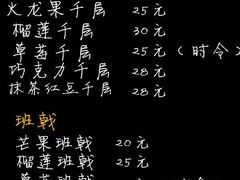 火龙果千层 25元
榴莲千层 30元
草莓千层 25元(时令)
巧克力千层 28元
抹茶红豆千层 28元
班戟
芒果班戟 20元
榴莲班戟 25元